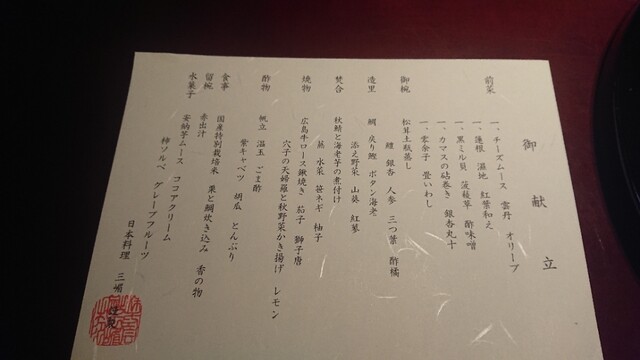 御献立
前菜
一、チーズムース 雲丹 オリーブ
一、蓮根 湿地 紅葉和え
一、黒ミル貝 菠薐草 酢味噌
一、カマスの砧巻き 銀杏丸十
一、零余子 畳いわし
御椀 松茸土瓶蒸し
鱧 銀杏 人参 三つ葉 酢橘
造里 鯛 戻り鰹 ボタン海老
添え野菜 山葵 紅蓼
焚合 秋鯖と海老芋の煮付け
蕪 水菜 笹ネギ 柚子
焼物 広島牛ロース鍬焼き 茄子 獅子唐
穴子の天婦羅と秋野菜かき揚げ レモン
酢物 帆立 温玉 ごま酢
紫キャベツ 胡瓜 とんぶり
食事 国産特別栽培米 栗と鯛炊き込み 香の物
留椀 赤出汁
水菓子 安納芋ムース ココアクリーム
柿ソルベ グレープフルーツ
日本料理 三嵋